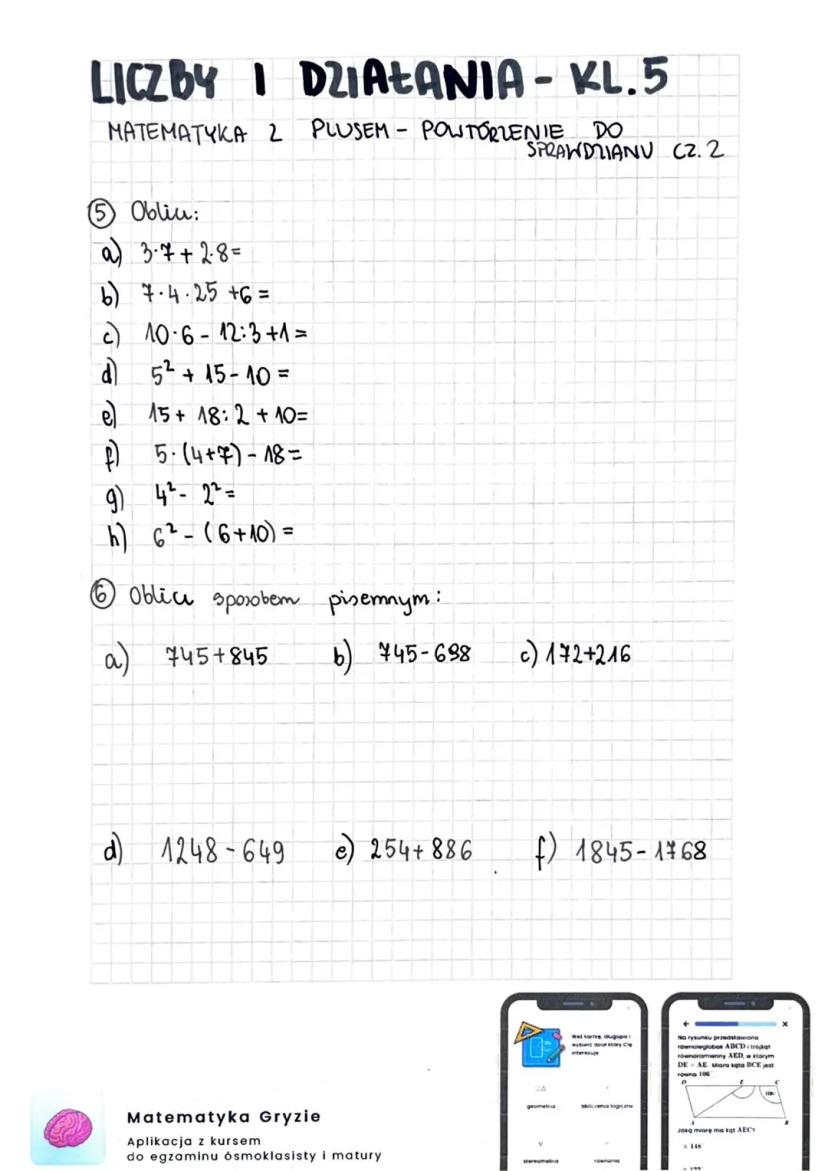 LICZBY I DZIAŁANIA - KL.5
MATEMATYKA Z PLUSEM - POWTÓRZENIE DO
SPRAWDZIANU CZ. 2
⑤ Oblicz:
a) 3·7 + 2·8 =
b) 7·4·25 + 6 =
c) 10·6 - 12:3 + 1 =
d) 5² + 15 - 10 =
e) 15 + 18:2 + 10 =
f) 5·(4+7) - 18 =
g) 4² - 2² =
h) 6² - (6+10) =
⑥ Oblicz sposobem pisemnym:
a) 745+845 b) 745-698 c) 172+216
d) 1248-649 e) 254+886 f) 1845-1768
Matematyka Gryzie
Aplikacja z kursem
do egzaminu ósmoklasisty i matury
Weź kartkę, długopis i
wybierz dział który Cię
interesuje
geometria obliczenia logiczne
stereometria równania
Na rysunku przedstawiono
równoległobok ABCD i trójkąt
równoramienny AED, w którym
DE = AE. Miara kąta BCE jest
równa 106
D E C
106
A B
Jaką miarę ma kąt AEC?
148